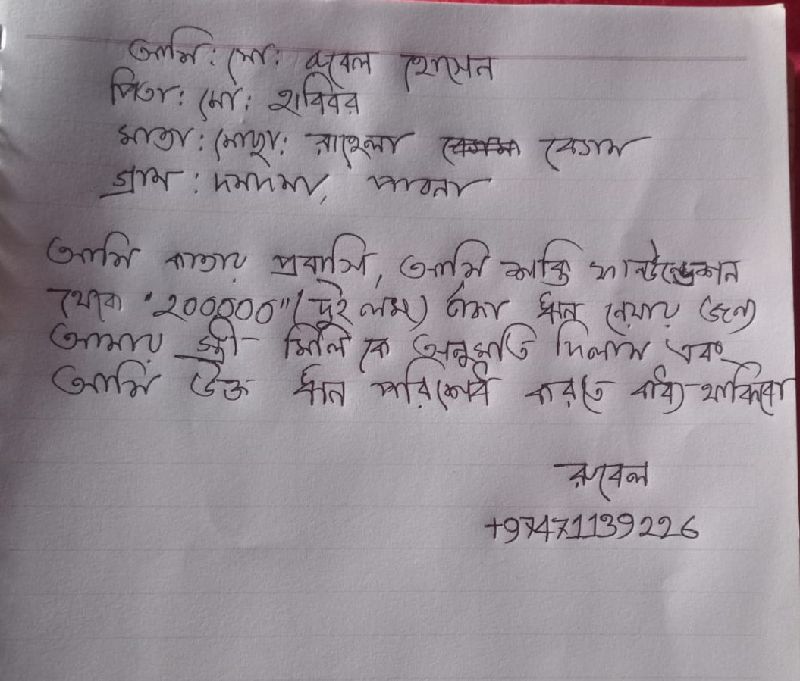 আমি: মো: রুবেল হোসেন
পিতা: মো: হবিবর
মাতা: মোছা: রাহেলা বেগম
গ্রাম: দমদমা, পাবনা
আমি কাতার প্রবাসি, আমি শক্তি ফাউন্ডেশন
থেকে "200000" (দুই লক্ষ) টাকা ঋন নেয়ার জন্য
আমার স্ত্রী মিলি কে অনুমতি দিলাম এবং
আমি উক্ত ঋন পরিশোধ করতে বাধ্য থাকিবো
রুবেল
+97471139226